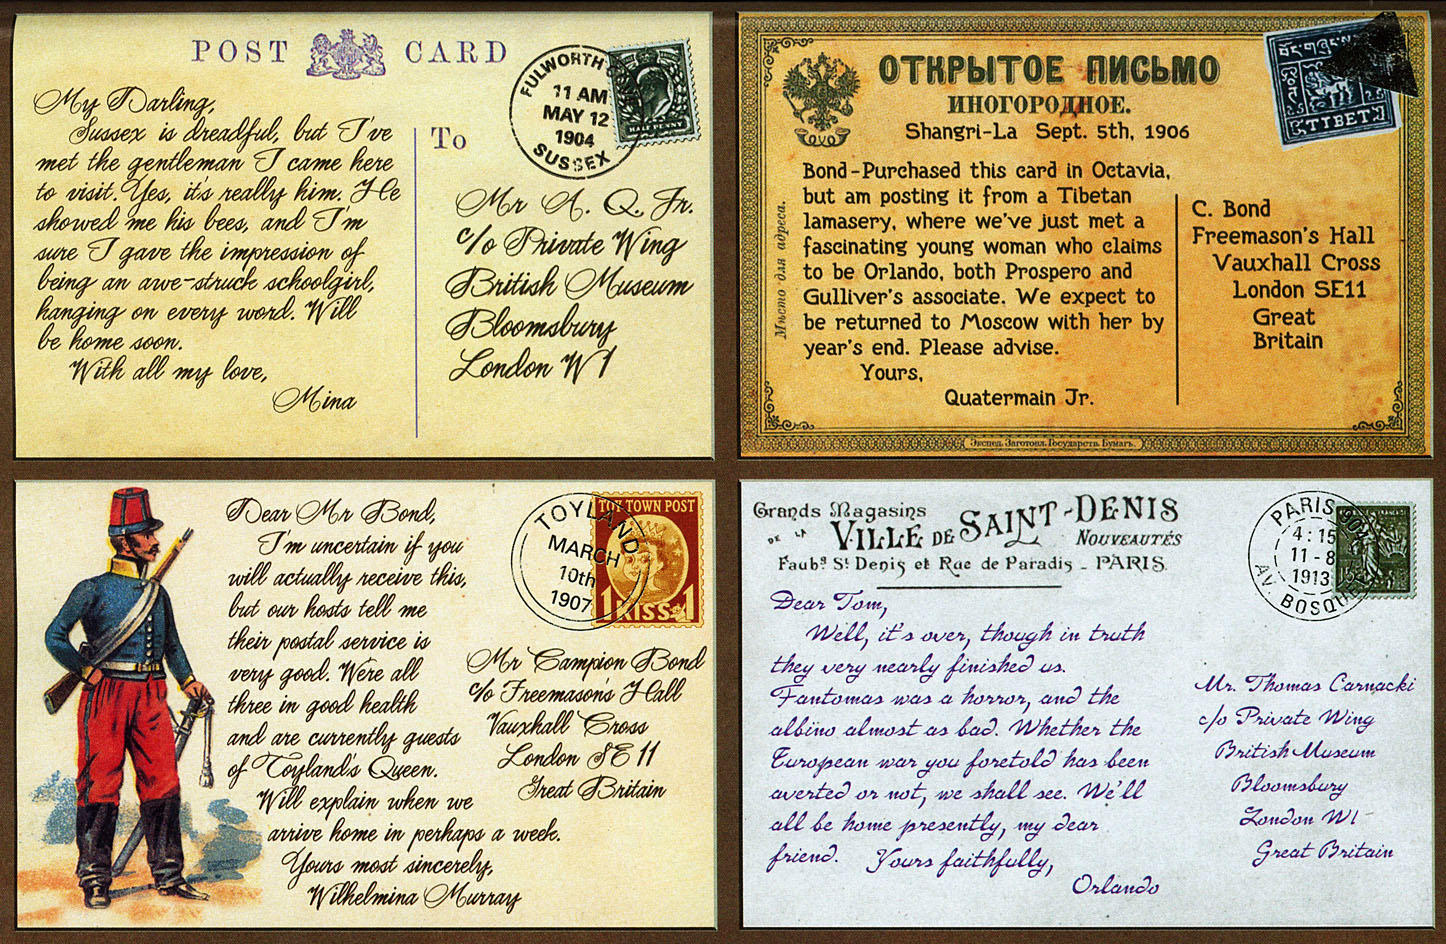 POST CARD
FULWORTH
11 AM
MAY 12
1904
SUSSEX
My Darling,
Sussex is dreadful, but I've
met the gentleman I came here
to visit. Yes, it's really him. He
showed me his bees, and I'm
sure I gave the impression of
being an awe-struck schoolgirl,
hanging on every word. Will
be home soon.
With all my love,
Mina
To
Mr A. Q. Jr.
c/o Private Wing
British Museum
Bloomsbury
London W1
ОТКРЫТОЕ ПИСЬМО
ИНОГОРОДНОЕ.
Shangri-La Sept. 5th, 1906
TIBET
Bond-Purchased this card in Octavia,
but am posting it from a Tibetan
lamasery, where we've just met a
fascinating young woman who claims
to be Orlando, both Prospero and
Gulliver's associate. We expect to
be returned to Moscow with her by
year's end. Please advise.
Yours,
Quatermain Jr.
Мѣсто для адреса.
C. Bond
Freemason's Hall
Vauxhall Cross
London SE11
Great
Britain
Экспед. Заготовл. Государств. Бумагъ.
Dear Mr Bond,
I'm uncertain if you
will actually receive this,
but our hosts tell me
their postal service is
very good. We're all
three in good health
and are currently guests
of Toyland's Queen.
Will explain when we
arrive home in perhaps a week.
Yours most sincerely,
Wilhelmina Murray
TOYLAND
MARCH
10th
1907
TOY TOWN POST
1 KISS 1
Mr Campion Bond
c/o Freemason's Hall
Vauxhall Cross
London SE11
Great Britain
Grands Magasins
DE LA VILLE DE SAINT-DENIS
NOUVEAUTÉS
Faubg St Denis et Rue de Paradis - PARIS
PARIS
4:15
11-8
1913
AV. BOSQUE
Dear Tom,
Well, it's over, though in truth
they very nearly finished us.
Fantomas was a horror, and the
albino almost as bad. Whether the
European war you foretold has been
averted or not, we shall see. We'll
all be home presently, my dear
friend. Yours faithfully,
Orlando
Mr. Thomas Carnacki
c/o Private Wing
British Museum
Bloomsbury
London W1
Great Britain